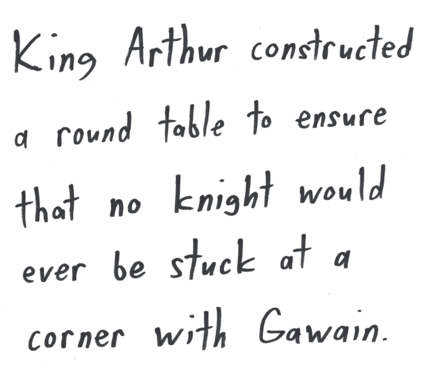 King Arthur constructed
a round table to ensure
that no knight would
ever be stuck at a
corner with Gawain.